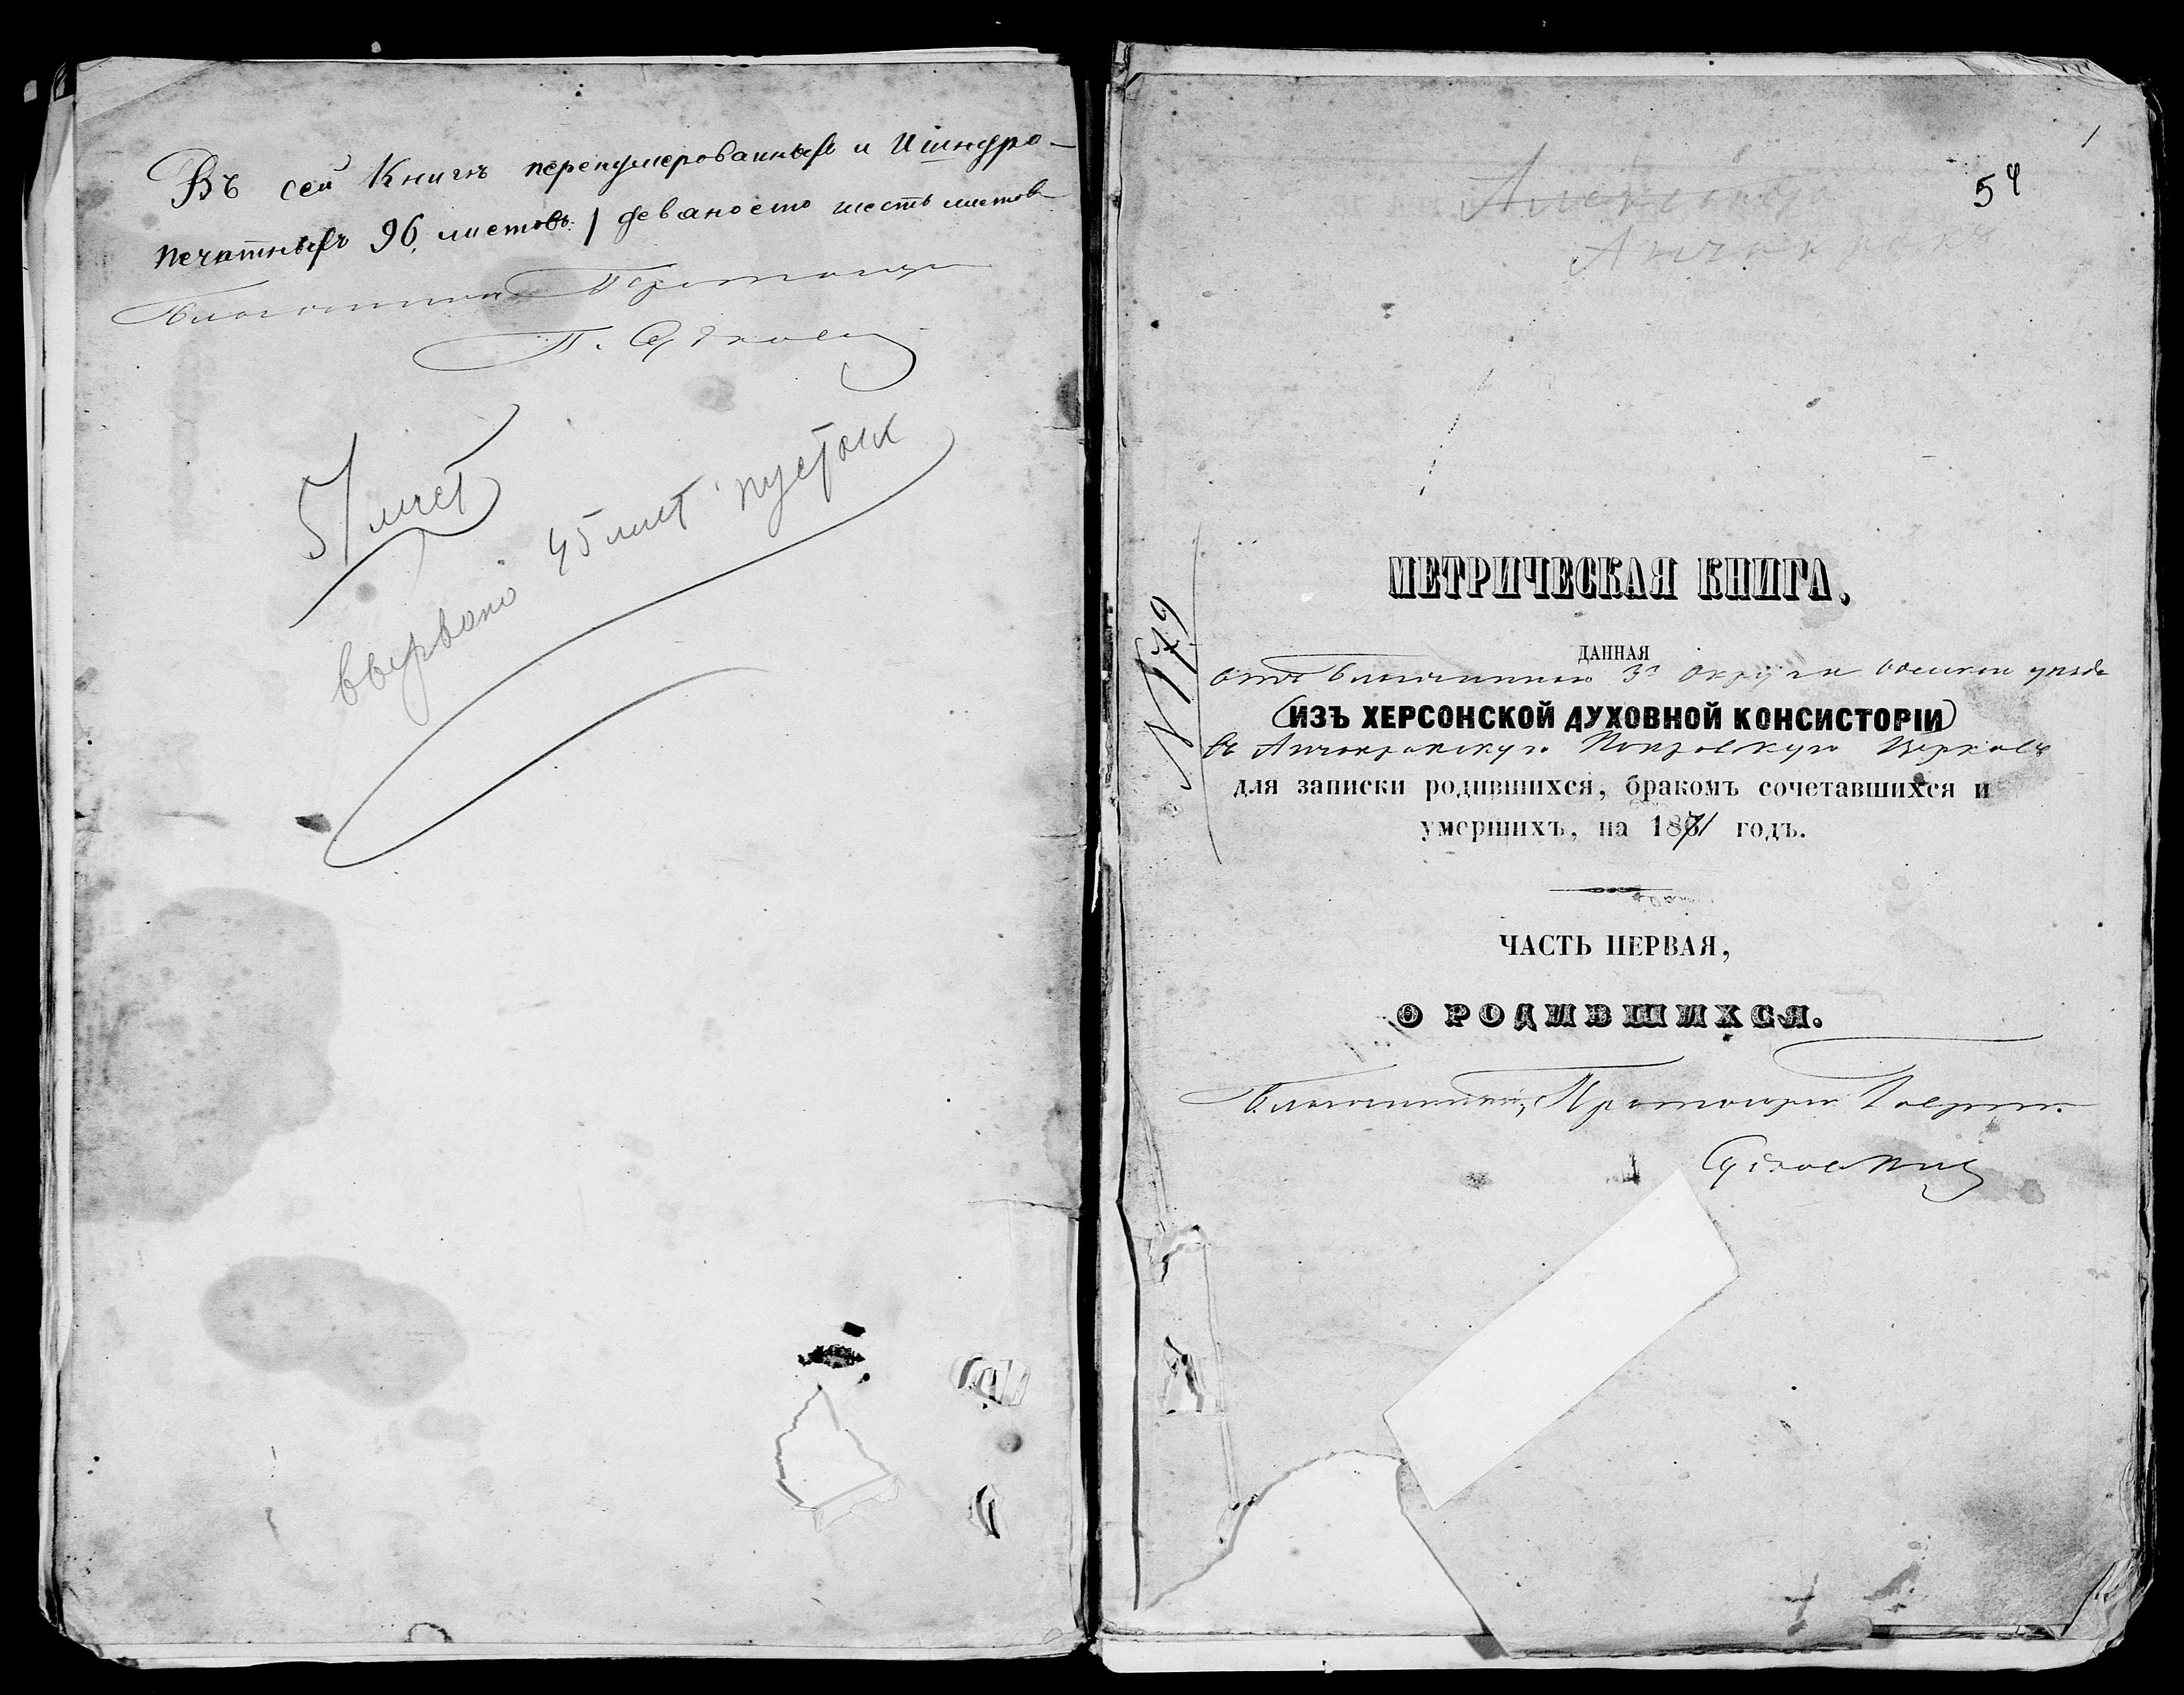 Въ сей Книгѣ перенумерованныхъ и Шнуро-
печатныхъ 96, листовъ / девяносто шесть листовъ
Благочинный Протоіерей
П.
51 лист
вырвано 45 лист пустых
1
54
Анчокракъ
№ 179
МЕТРИЧЕСКАЯ КНИГА,
ДАННАЯ
отъ Благочиннаго 3го Округа уезда
(ИЗЪ ХЕРСОНСКОЙ ДУХОВНОЙ КОНСИСТОРІИ)
въ Анчокракскую Покровскую Церковь
для записки родившихся, бракомъ сочетавшихся и
умершихъ, на 1871 годъ.
ЧАСТЬ ПЕРВАЯ,
О РОДИВШИХСЯ.
Благочинный, Протоіерей